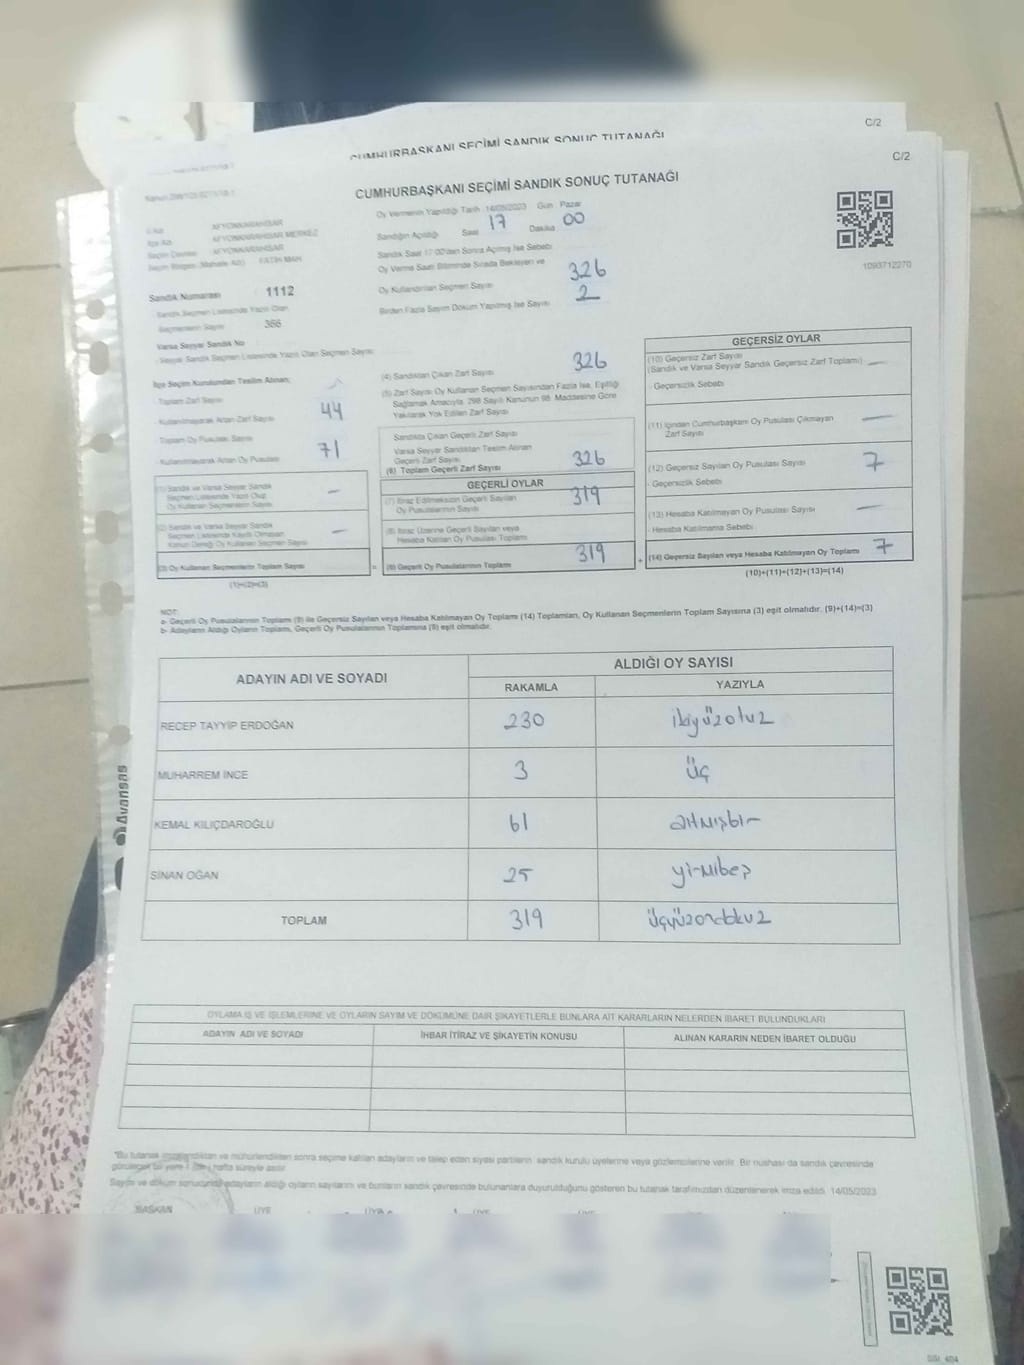 C/2
CUMHURBAŞKANI SEÇİMİ SANDIK SONUÇ TUTANAĞI
C/2
CUMHURBAŞKANI SEÇİMİ SANDIK SONUÇ TUTANAĞI
1093712270
İl Adı AFYONKARAHİSAR
İlçe Adı AFYONKARAHİSAR MERKEZ
Seçim Çevresi AFYONKARAHİSAR
Seçim Bölgesi (Mahalle Adı) FATİH MAH
Sandık Numarası 1112
Sandık Seçmen Listesinde Yazılı Olan
Seçmenlerin Sayısı 366
Varsa Seyyar Sandık No
Seyyar Sandık Seçmen Listesinde Yazılı Olan Seçmen Sayısı
Oy Vermenin Yapıldığı Tarih : 14/05/2023 Gün : Pazar
Sandığın Açıldığı Saat 17 Dakika 00
Sandık Saat 17:00'den Sonra Açılmış İse Sebebi
Oy Verme Saati Bitiminde Sırada Bekleyen ve
Oy Kullandırılan Seçmen Sayısı 326
Birden Fazla Sayım Döküm Yapılmış İse Sayısı 2
İlçe Seçim Kurulundan Teslim Alınan;
Toplam Zarf Sayısı
Kullanılmayarak Artan Zarf Sayısı 44
Toplam Oy Pusulası Sayısı
Kullanılmayarak Artan Oy Pusulası 71
(1) Sandık ve Varsa Seyyar Sandık
Seçmen Listesinde Yazılı Olup
Oy Kullanan Seçmenlerin Sayısı —
(2) Sandık ve Varsa Seyyar Sandık
Seçmen Listesinde Kayıtlı Olmayan
Kanun Gereği Oy Kullanan Seçmen Sayısı —
(3) Oy Kullanan Seçmenlerin Toplam Sayısı
(1)+(2)=(3)
(4) Sandıktan Çıkan Zarf Sayısı 326
(5) Zarf Sayısı Oy Kullanan Seçmen Sayısından Fazla İse, Eşitliği
Sağlamak Amacıyla, 298 Sayılı Kanunun 98. Maddesine Göre
Yakılarak Yok Edilen Zarf Sayısı
Sandıkta Çıkan Geçerli Zarf Sayısı
Varsa Seyyar Sandıktan Teslim Alınan
Geçerli Zarf Sayısı
(6) Toplam Geçerli Zarf Sayısı 326
GEÇERLİ OYLAR
(7) İtiraz Edilmeksizin Geçerli Sayılan
Oy Pusulasının Sayısı 319
(8) İtiraz Üzerine Geçerli Sayılan veya
Hesaba Katılan Oy Pusulası Toplamı
= (9) Geçerli Oy Pusulalarının Toplamı 319
GEÇERSİZ OYLAR
(10) Geçersiz Zarf Sayısı
(Sandık ve Varsa Seyyar Sandık Geçersiz Zarf Toplamı) —
- Geçersizlik Sebebi
(11) İçinden Cumhurbaşkanı Oy Pusulası Çıkmayan
Zarf Sayısı —
(12) Geçersiz Sayılan Oy Pusulası Sayısı 7
- Geçersizlik Sebebi
(13) Hesaba Katılmayan Oy Pusulası Sayısı —
- Hesaba Katılmama Sebebi
+ (14) Geçersiz Sayılan veya Hesaba Katılmayan Oy Toplamı 7
(10)+(11)+(12)+(13)=(14)
NOT:
a- Geçerli Oy Pusulalarının Toplamı (9) ile Geçersiz Sayılan veya Hesaba Katılmayan Oy Toplamı (14) Toplamları, Oy Kullanan Seçmenlerin Toplam Sayısına (3) eşit olmalıdır. (9)+(14)=(3)
b- Adayların Aldığı Oyların Toplamı, Geçerli Oy Pusulalarının Toplamına (9) eşit olmalıdır.
ADAYIN ADI VE SOYADI ALDIĞI OY SAYISI
RAKAMLA YAZIYLA
RECEP TAYYİP ERDOĞAN 230 ikiyüzotuz
MUHARREM İNCE 3 üç
KEMAL KILIÇDAROĞLU 61 altmışbir
SİNAN OĞAN 25 yirmibeş
TOPLAM 319 üçyüzondokuz
OYLAMA İŞ VE İŞLEMLERİNE VE OYLARIN SAYIM VE DÖKÜMÜNE DAİR ŞİKAYETLERLE BUNLARA AİT KARARLARIN NELERDEN İBARET BULUNDUKLARI
ADAYIN ADI VE SOYADI İHBAR İTİRAZ VE ŞİKAYETİN KONUSU ALINAN KARARIN NEDEN İBARET OLDUĞU
*Bu tutanak imzalandıktan ve mühürlendikten sonra seçime katılan adayların ve talep eden siyasi partilerin sandık kurulu üyelerine veya gözlemcilerine verilir. Bir nüshası da sandık çevresinde
görülecek bir yere 1 (bir) hafta süreyle asılır.
Sayım ve döküm sonucunda adayların aldığı oyların sayılarını ve bunların sandık çevresinde bulunanlara duyurulduğunu gösteren bu tutanak tarafımızdan düzenlenerek imza edildi. 14/05/2023
BAŞKAN ÜYE ÜYE ÜYE ÜYE
Avansas